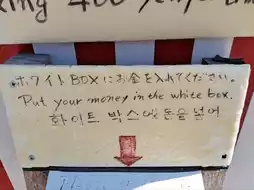 ホワイトBOXにお金を入れてください。
Put your money in the white box.
화이트 박스에 돈을 넣어